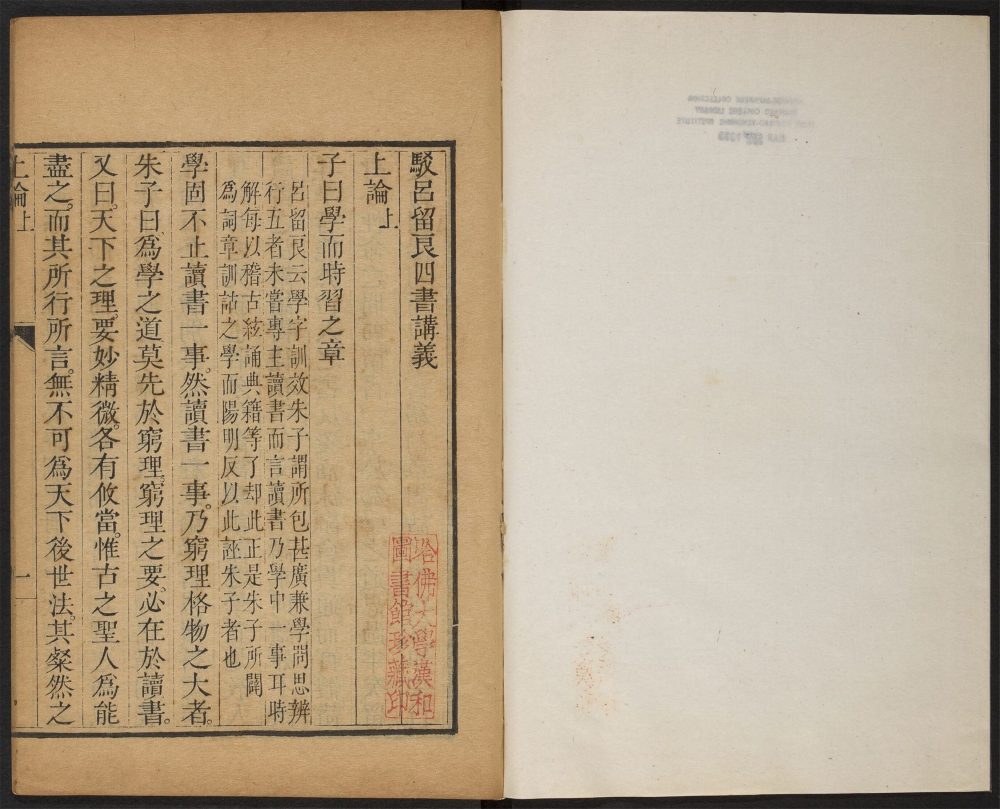 駁呂留良四書講義
上論上
子曰學而時習之章
呂留良云學字訓效朱子謂所包甚廣兼學問思辨
行五者未嘗專主讀書而言讀書乃學中一事耳時
解每以稽古絃誦典籍等了却此正是朱子所闢
爲詞章訓詁之學而陽明反以此誣朱子者也
學固不止讀書一事。然讀書一事。乃窮理格物之大者。
朱子曰。爲學之道莫先於窮理。窮理之要。必在於讀書。
又曰。天下之理。要妙精微。各有攸當。惟古之聖人爲能
盡之。而其所行所言。無不可爲天下後世法。其粲然之
上論上
一
哈佛大學漢和
圖書館珍藏印